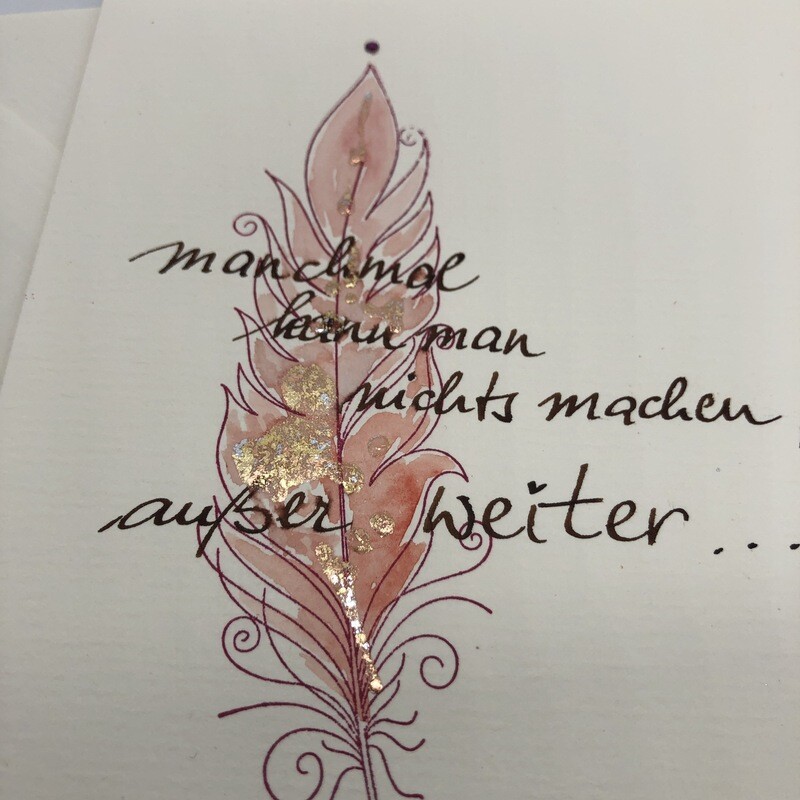 manchmal
kann man
nichts machen,
außer weiter...